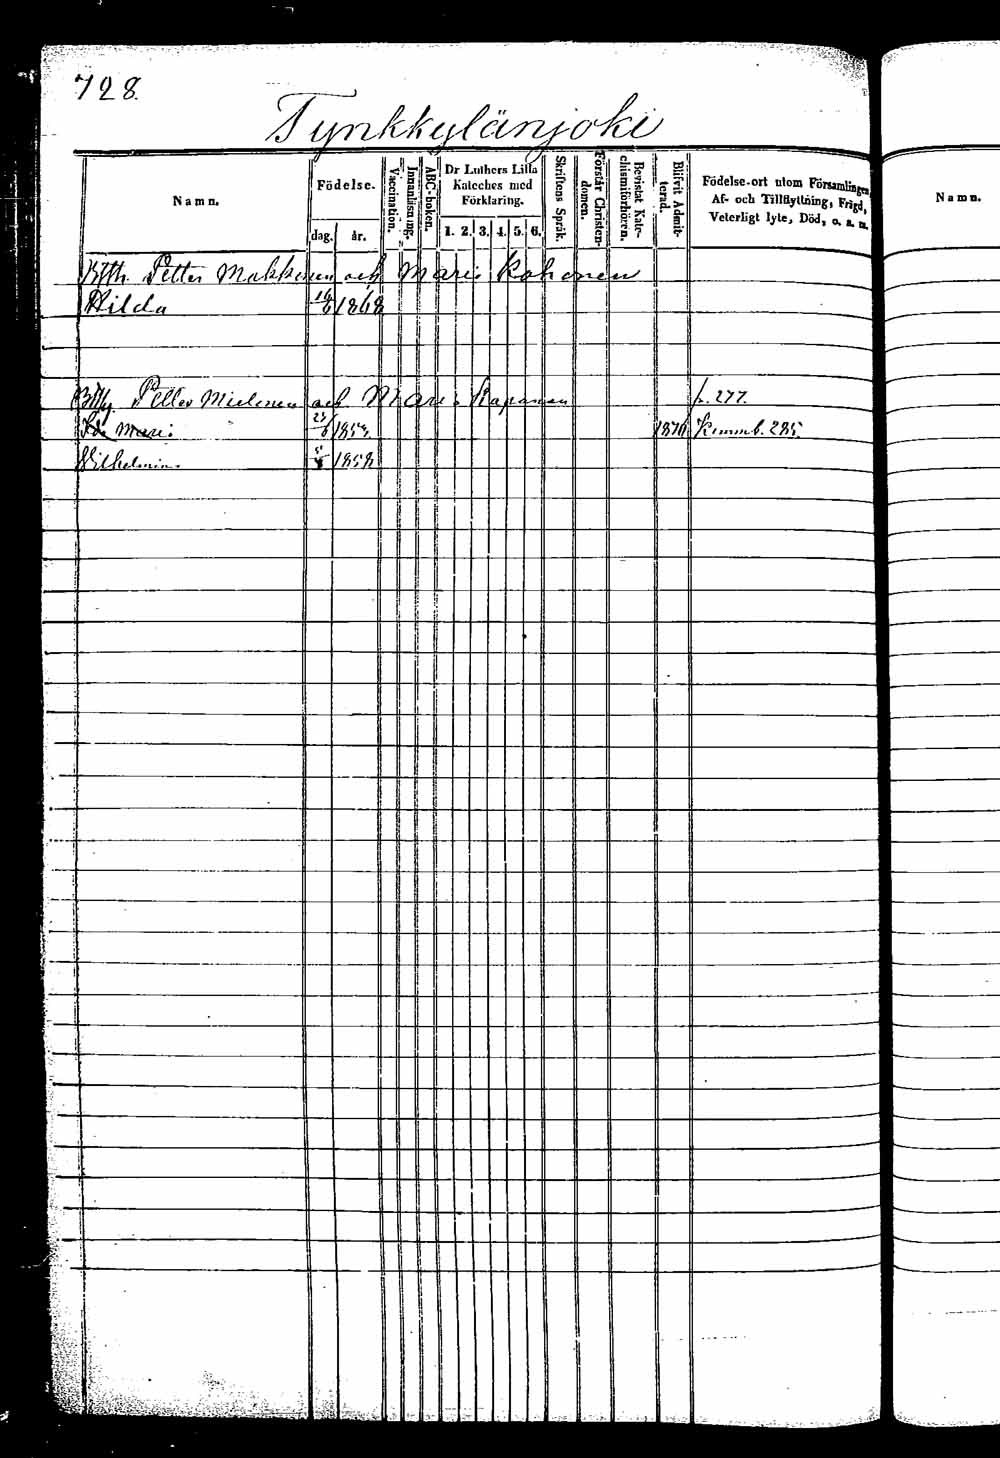 728.
Tynkkylänjoki
Namn.
Födelse.
dag. år.
Vaccination.
Innanläsning.
ABC-boken.
Dr Luthers Lilla
Kateches med
Förklaring.
1. 2. 3. 4. 5. 6.
Skriftens Språk.
Förstår Christen-
domen.
Bevistat Kate-
chismiförhören.
Blifvit Admit-
terad.
Födelse-ort utom Församlingen,
Af- och Tillflyttning, Frägd,
Veterligt lyte, Död, o. s. m.
Namn.
Petter Makkonen och Maria Kohonen
Hilda 1868
Petter Mielonen och Maria Kapanen p. 277.
Ida Maria 23/6 1853. 1870 Kommb. 285.
Wilhelmin. 1858